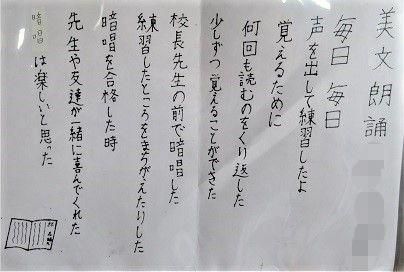 美文朗誦
毎日毎日
声を出して練習したよ
覚えるために
何回も読むのをくり返した
少しずつ覚えることができた
校長先生の前で暗唱した
練習したところをまちがえたりした
暗唱を合格した時
先生や友達が一緒に喜んでくれた
暗唱は楽しいと思った